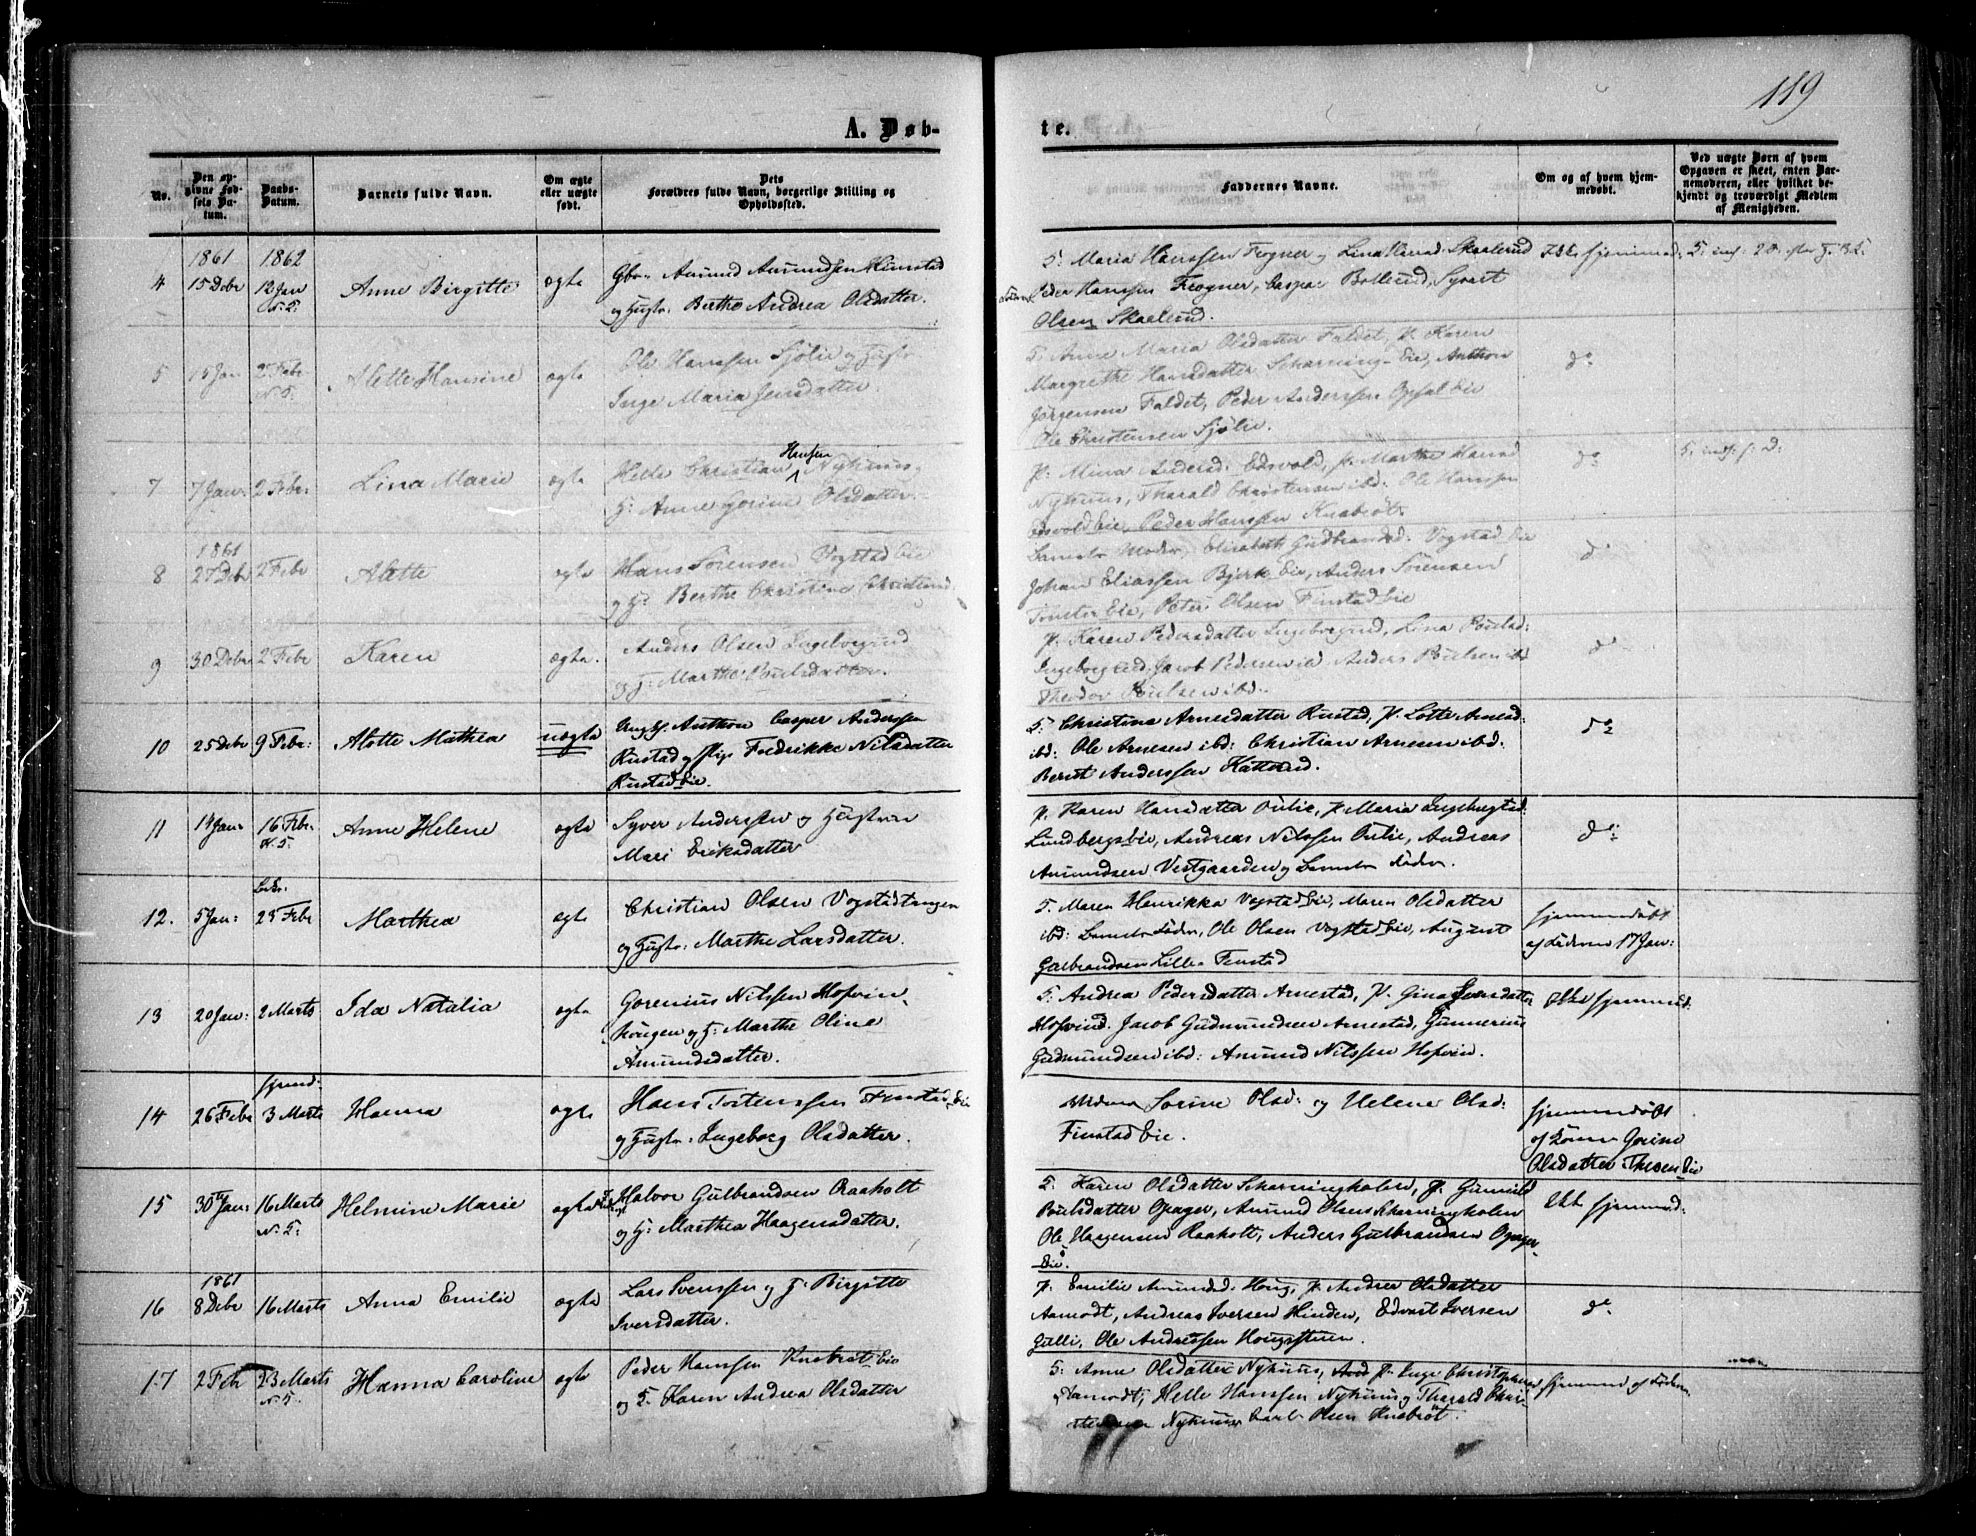 119
A. Døb-
te.
No.
Den op-
givne Fød-
sels Da-
tum.
Daabs-
Datum.
Barnets fulde Navn.
Om ægte
eller uægte
født.
Dets
Forældres fulde Navn, borgerlige Stilling og
Opholdssted.
Faddernes Navne.
Om og af hvem hjem-
medøbt.
Ved uægte Børn af hvem
Opgaven er skeet, enten Bar-
nemoderen, eller hvilket be-
kjendt og troværdigt Medlem
af Menigheden.
4
1861
15 Debr
1862
12 Jan
N. T.
Anne Birgitte
ægte
Gbr. Amund Amundsen Finstad
og Hustr. Berthe Andrea Olsdatter.
Maria Hanssen Frogner
Skaalerud
Peder Hanssen Frogner, Casper Bollerud, Syvert
Olsen Skaalerud.
5
15 Jan
2 Febr
N. T.
Alette Hansine
ægte
Ole Hanssen Sjølie og Hustr
Inge Maria Jensdatter.
T. Anne Maria Olsdatter Faldet, P. Karen
Margrethe Hansdatter Scharning-Eie, Anthon
Jørgensen Faldet, Peder Anderssen Opsal Eie
Ole Christensen Sjølie.
do
7
7 Jan:
2 Febr:
Lina Marie
ægte
Hansen
Helle Christian Nyhuus
H: Anne Gorine Olsdatter.
P: Mina Andersd: Edsvold, P. Marthe Hansd
Nyhuus, Tharald Christensen ibd: Ole Hanssen
Edsvold Eie, Peder Hanssen Knabrøt
do
8
1861
27 Debr
2 Febr
Alette
ægte
Hans Sørensen Vogstad Eie
og H: Berthe Christine
Barnets Moder, Elisabeth Gudbrandsd: Vogstad Eie
Johan Eliassen Bjerke Eie, Anders Sørensen
Eie, Peter Olsen Finstad Eie
do
9
30 Debr
2 Febr
Karen
ægte.
Anders Olsen Ingeborgrud
og H: Marthe Poulsdatter.
P. Karen Pedersdatter Ingeborgrud, Lina Poulsd:
Ingeborgrud, Jacob Pedersen ibd Anders Poulsen ibd
Theodor Poulsen ibd.
do
10
25 Debr
9 Febr:
Alette Mathea
uægte
Ungk. Anthon Casper Anderssen
Rustad og Pige Fredrikke Nilsdatter
Rustad Eie.
T: Christine Arnesdatter Rustad, P. Lotte Arnesd:
ibd: Ole Arnesen ibd: Christian Arnesen ibd:
Bernt Anderssen
do
11
14 Jan:
16 Febr.
N. T.
Anne Helene
ægte
Syver Anderssen og Hustru
Mari Eriksdatter
P. Karen Hansdatter Oulie, P. Maria
Lundbergseie, Andreas Nilssen Oulie, Andreas
Amundsen Vestgaarden og Barnets Fader.
do
12.
5 Jan:
23 Febr
Marthea
ægte
Christian Olsen Vogstadtangen
og Hustr: Marthe Larsdatter.
T. Maren Henrikka Vogstad Eie, Maren Olsdatter
ibd: Barnets Fader, Ole Olsen Vogstad Eie, August
Gulbrandsen Lille Finstad
hjemmedøbt
af Faderen 17 Jan:
13
20 Jan:
2 Marts
Ida Natalia
ægte
Gorenius Nilssen Hofvin
og H: Marthe Oline
Amundsdatter.
T. Andrea Pedersdatter Arnestad, P. Gina Jensdatter
Hofvind. Jacob Gudmundsen Arnestad, Gunnerius
Gudmundsen ibd: Amund Nilssen Hofvin.
Ikke hjemmed:
14
26 Febr
hjemmd.
3 Marts
Hanna
ægte
Hans Torstenssen Finstad Eie
og Hustr: Ingeborg Olsdatter.
Sorine Olsd: og Helene Olsd:
Finstad Eie.
hjemmedøbt
af Gorine
Olsdatter Eie
15
30te Jan:
16 Marts
N. T.
Helmine Marie
ægte
Halvor Gulbrandsen Raaholt
og H: Marthea Haagensdatter.
T. Karen Olsdatter Scharningholen, P. Gunild
Poulsdatter Opager, Amund Olsen Scharningholen
Ole Haagensen Raaholt, Anders Gulbrandsen Opager
Eie.
Ikke hjemmed:
16
1861
8 Debr
16 Marts
Anna Emilie
ægte
Lars Svenssen og H: Birgitte
Iversdatter.
P. Emilie Amundsd. Houg, P. Andrea Olsdatter
Aamodt, Andreas Iversen Hinden, Edvart Iversen
Gulli, Ole Andressen Hougstuen.
do
17
2 Febr
23 Marts
N. T.
Hanna Caroline
ægte
Peder Hanssen Knabrøt Eie
og H. Karen Andrea Olsdatter
T: Anne Olsdatter Nyhuus, P. Inge
Aamodt, Helle Hanssen Nyhuus og Tharald Chri-
Nyhuus Carl Olsen Knabrøt.
hjemmed af Faderen